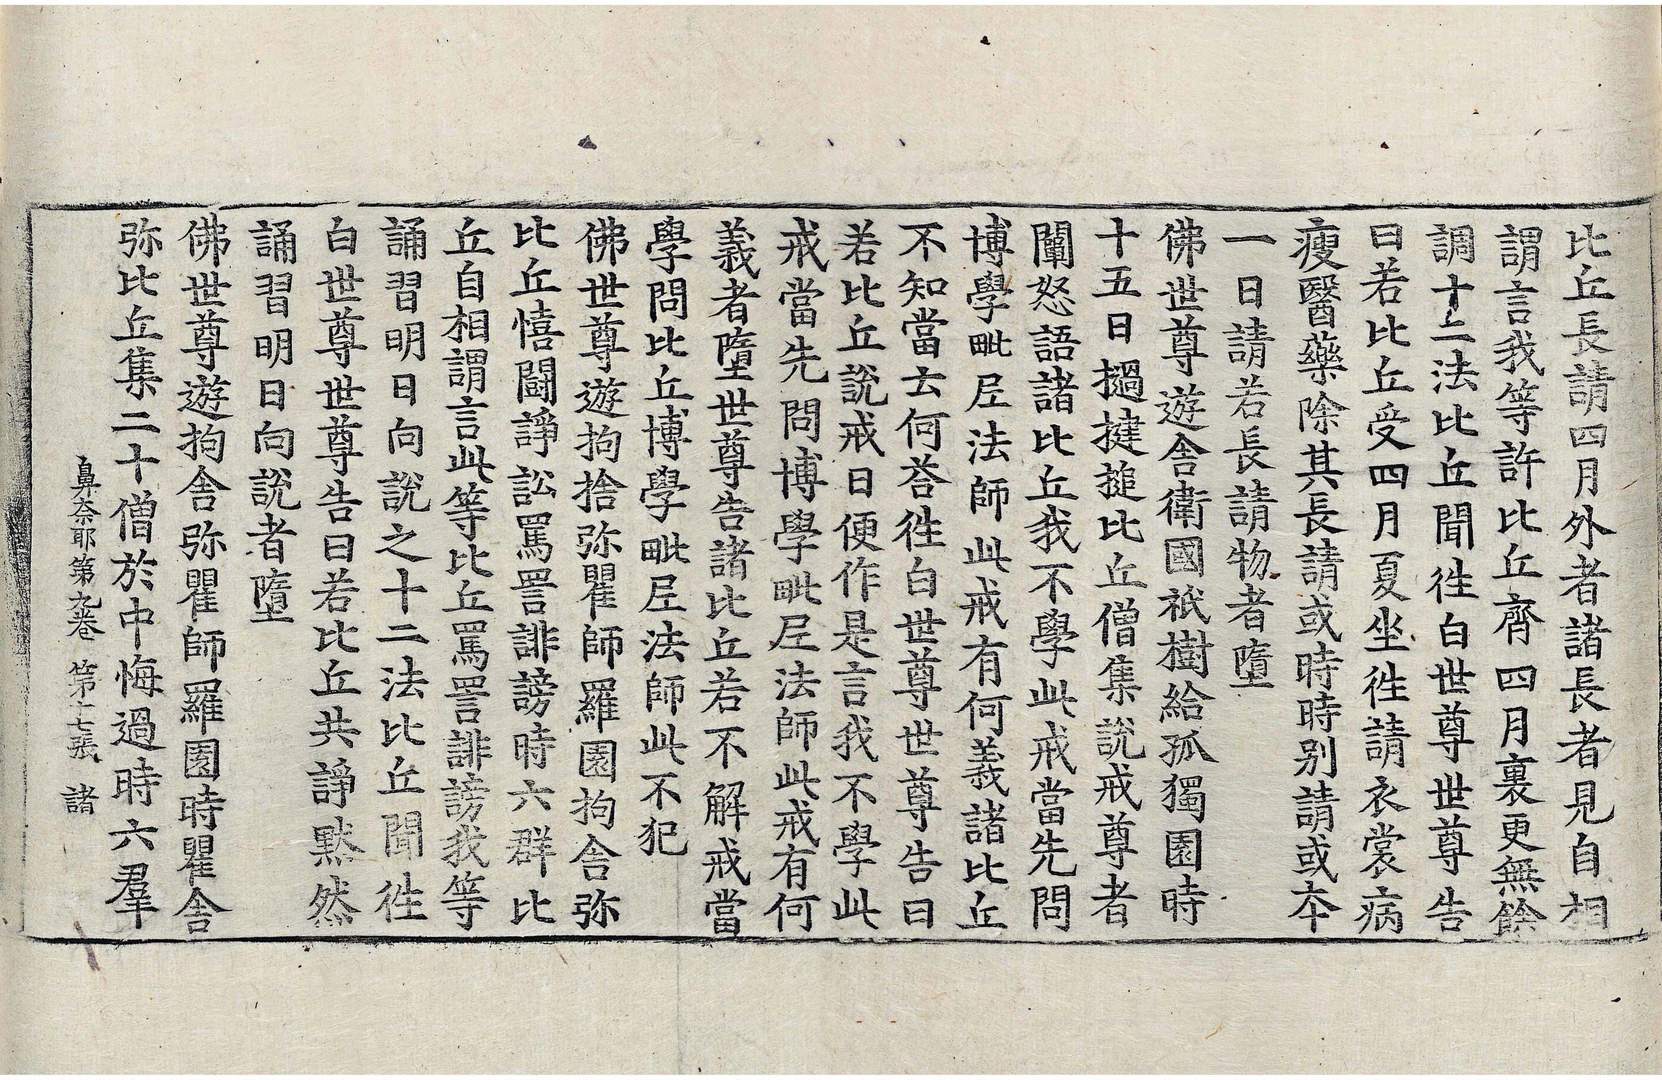 比丘長請四月外者諸長者見自相
謂言我等許比丘齊四月裏更無餘
調十二法比丘聞徃白世尊世尊告
曰若比丘受四月夏坐徃請衣裳病
瘦醫藥除其長請或時時別請或夲
一日請若長請物者墮
佛世尊遊舍衛國祇樹給孤獨園時
十五日撾揵搥比丘僧集說戒尊者
闡怒語諸比丘我不學此戒當先問
博學毗𡰱法師此戒有何義諸比丘
不知當云何荅徃白世尊世尊告曰
若比丘說戒日便作是言我不學此
戒當先問博學毗𡰱法師此戒有何
義者墮世尊告諸比丘若不解戒當
學問比丘博學毗𡰱法師此不犯
佛世尊遊拘捨弥瞿師羅園拘舍弥
比丘憘鬪諍訟罵詈誹謗時六群比
丘自相謂言此等比丘罵詈誹謗我等
誦習明日向說之十二法比丘聞徃
白世尊世尊告曰若比丘共諍黙然
誦習明日向說者墮
佛世尊遊拘舍弥瞿師羅園時瞿舍
弥比丘集二十僧於中悔過時六羣
鼻奈耶第九卷 第十七張 諸